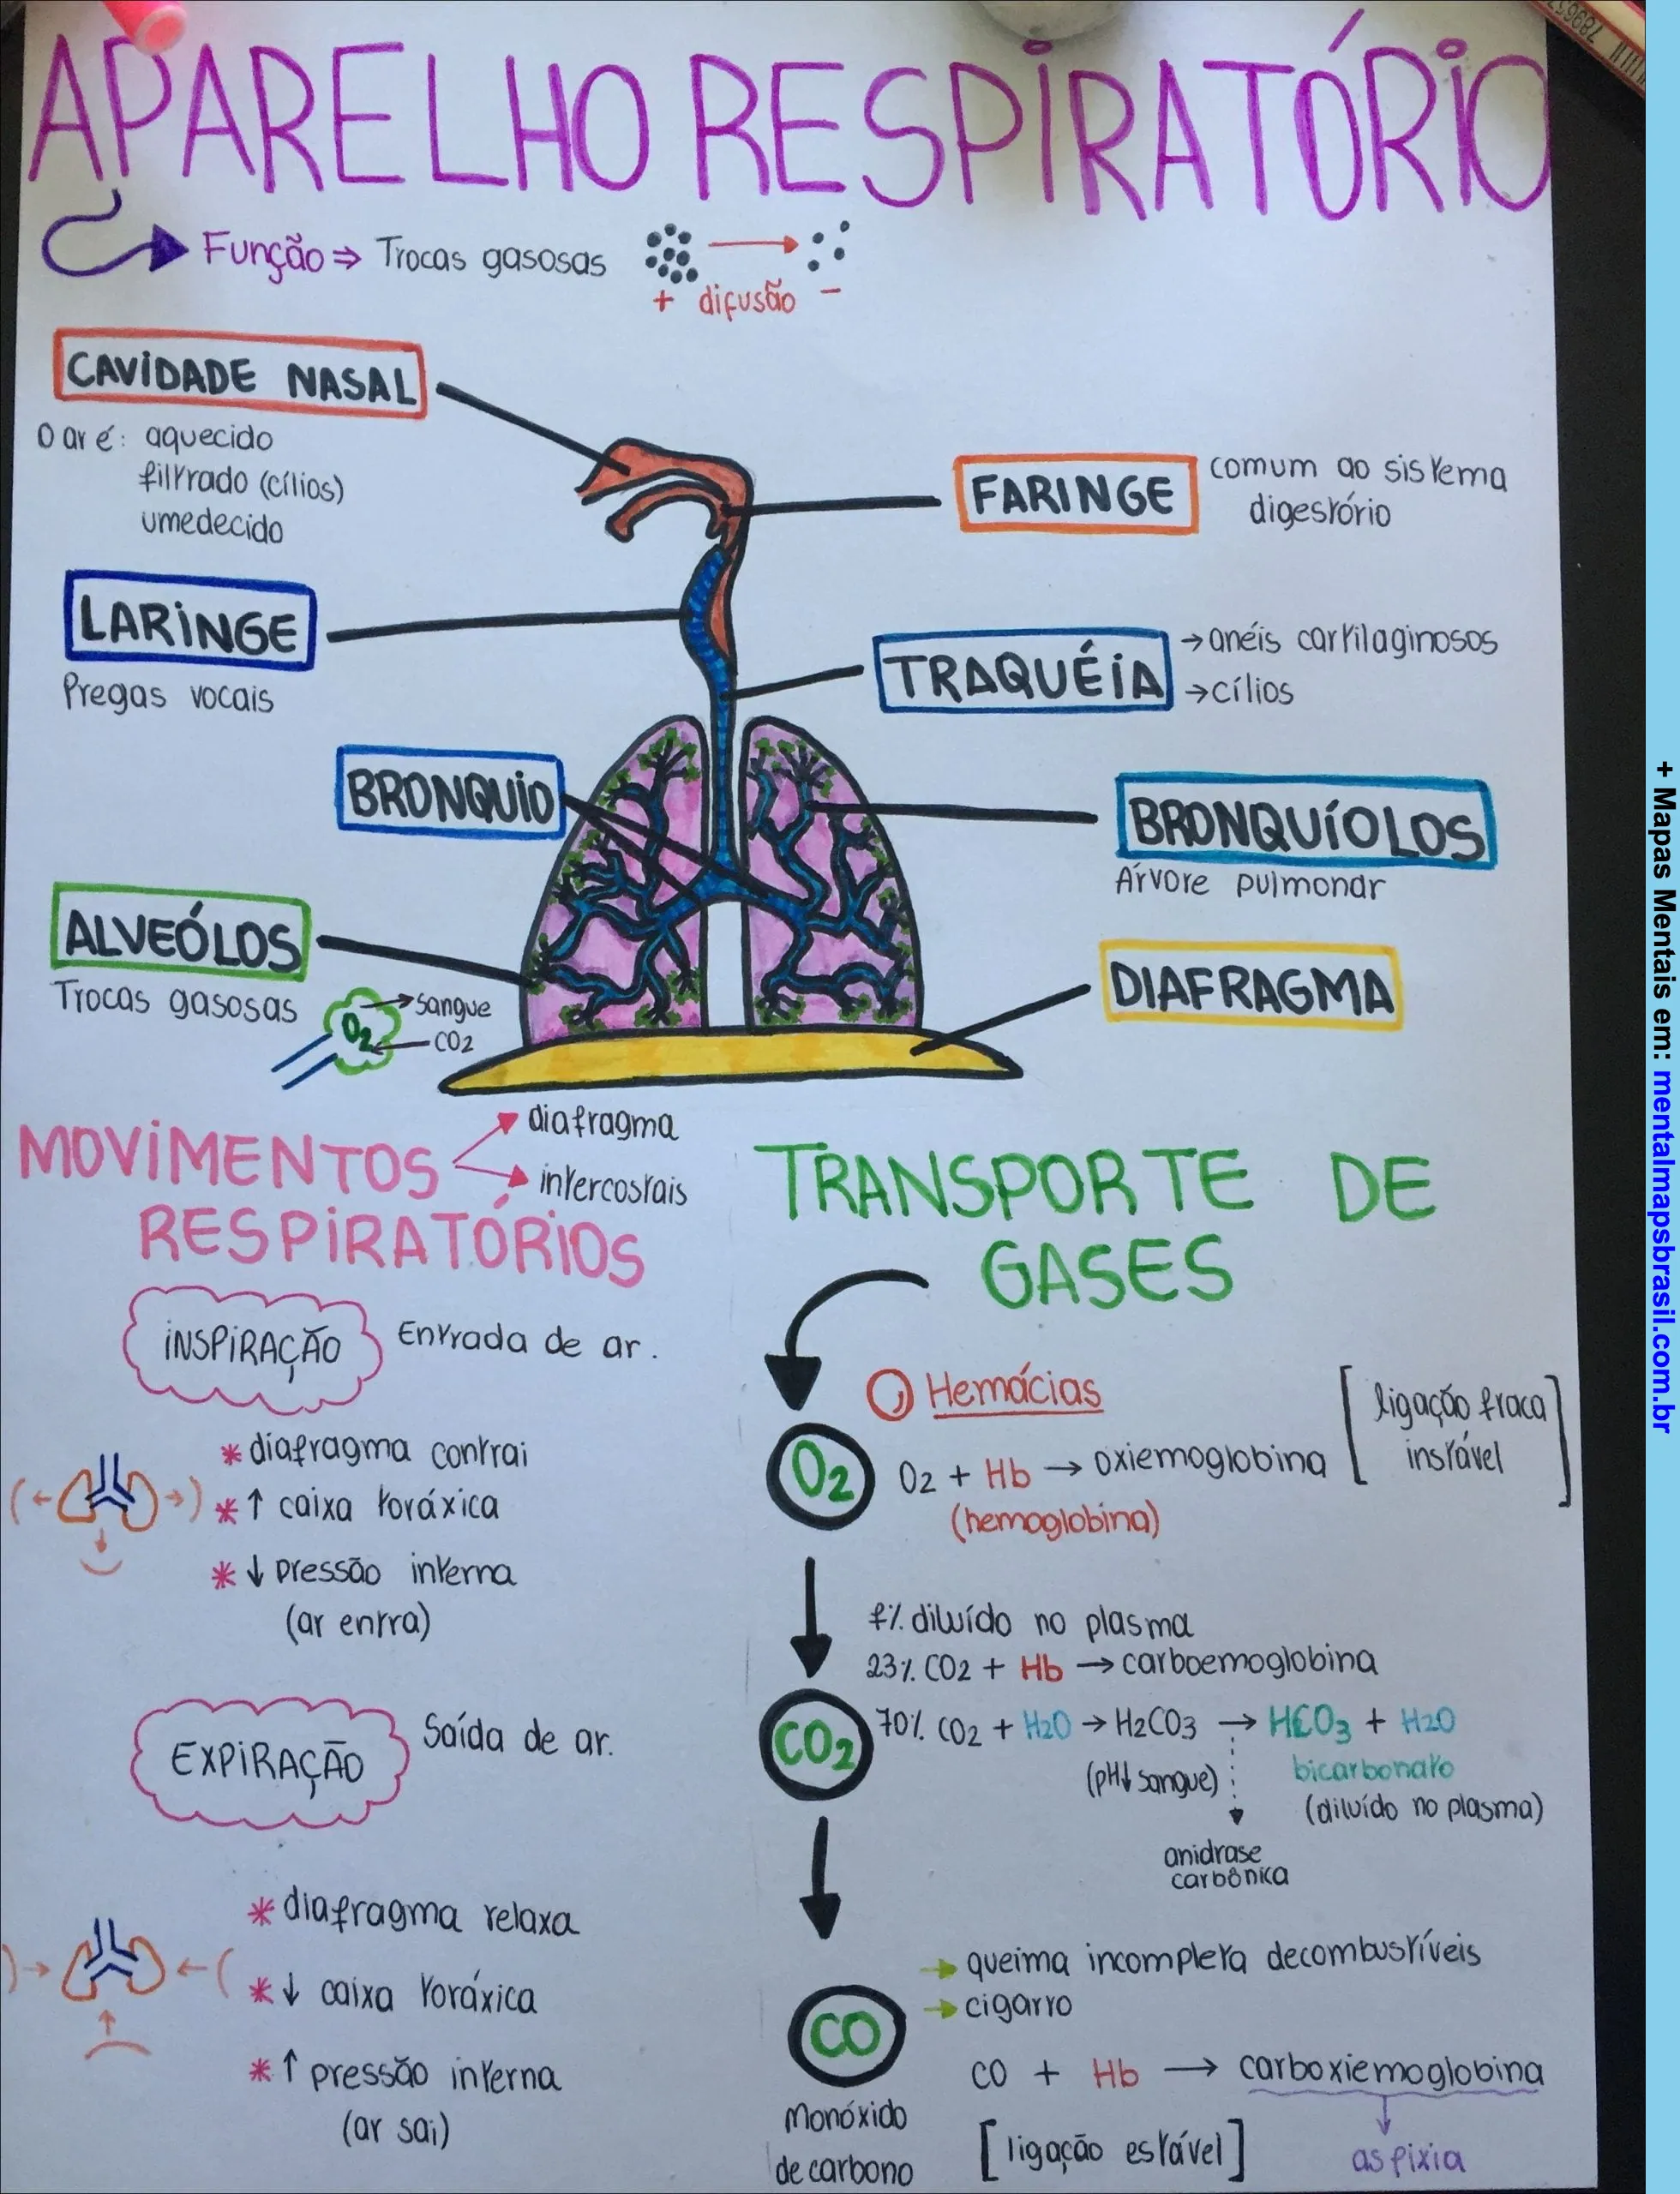 APARELHO RESPIRATÓRIO
Função ⇒ Trocas gasosas
+ difusão -
CAVIDADE NASAL
O ar é: aquecido
filtrado (cílios)
umedecido
FARINGE
comum ao sistema
digestório
LARINGE
Pregas vocais
TRAQUÉIA
→ anéis cartilaginosos
→ cílios
BRONQUIO
BRONQUÍOLOS
Árvore pulmonar
ALVEÓLOS
Trocas gasosas
O2
→ sangue
CO2
DIAFRAGMA
MOVIMENTOS
RESPIRATÓRIOS
diafragma
intercostais
INSPIRAÇÃO
Entrada de ar.
* diafragma contrai
* ↑ caixa toráxica
* ↓ pressão interna
(ar entra)
EXPIRAÇÃO
Saída de ar.
* diafragma relaxa
* ↓ caixa toráxica
* ↑ pressão interna
(ar sai)
TRANSPORTE DE
GASES
Hemácias
O2
O2 + Hb → oxiemoglobina
(hemoglobina)
[ligação fraca
instável]
7% diluído no plasma
23% CO2 + Hb → carboemoglobina
CO2
70% CO2 + H2O → H2CO3 → HCO3 + H2O
(pH↓ sangue)
bicarbonato
(diluído no plasma)
anidrase
carbônica
→ queima incompleta decombustíveis
→ cigarro
CO
Monóxido
de carbono
CO + Hb → carboxiemoglobina
[ligação estável]
asfixia
+ Mapas Mentais em: mentalmapsbrasil.com.br